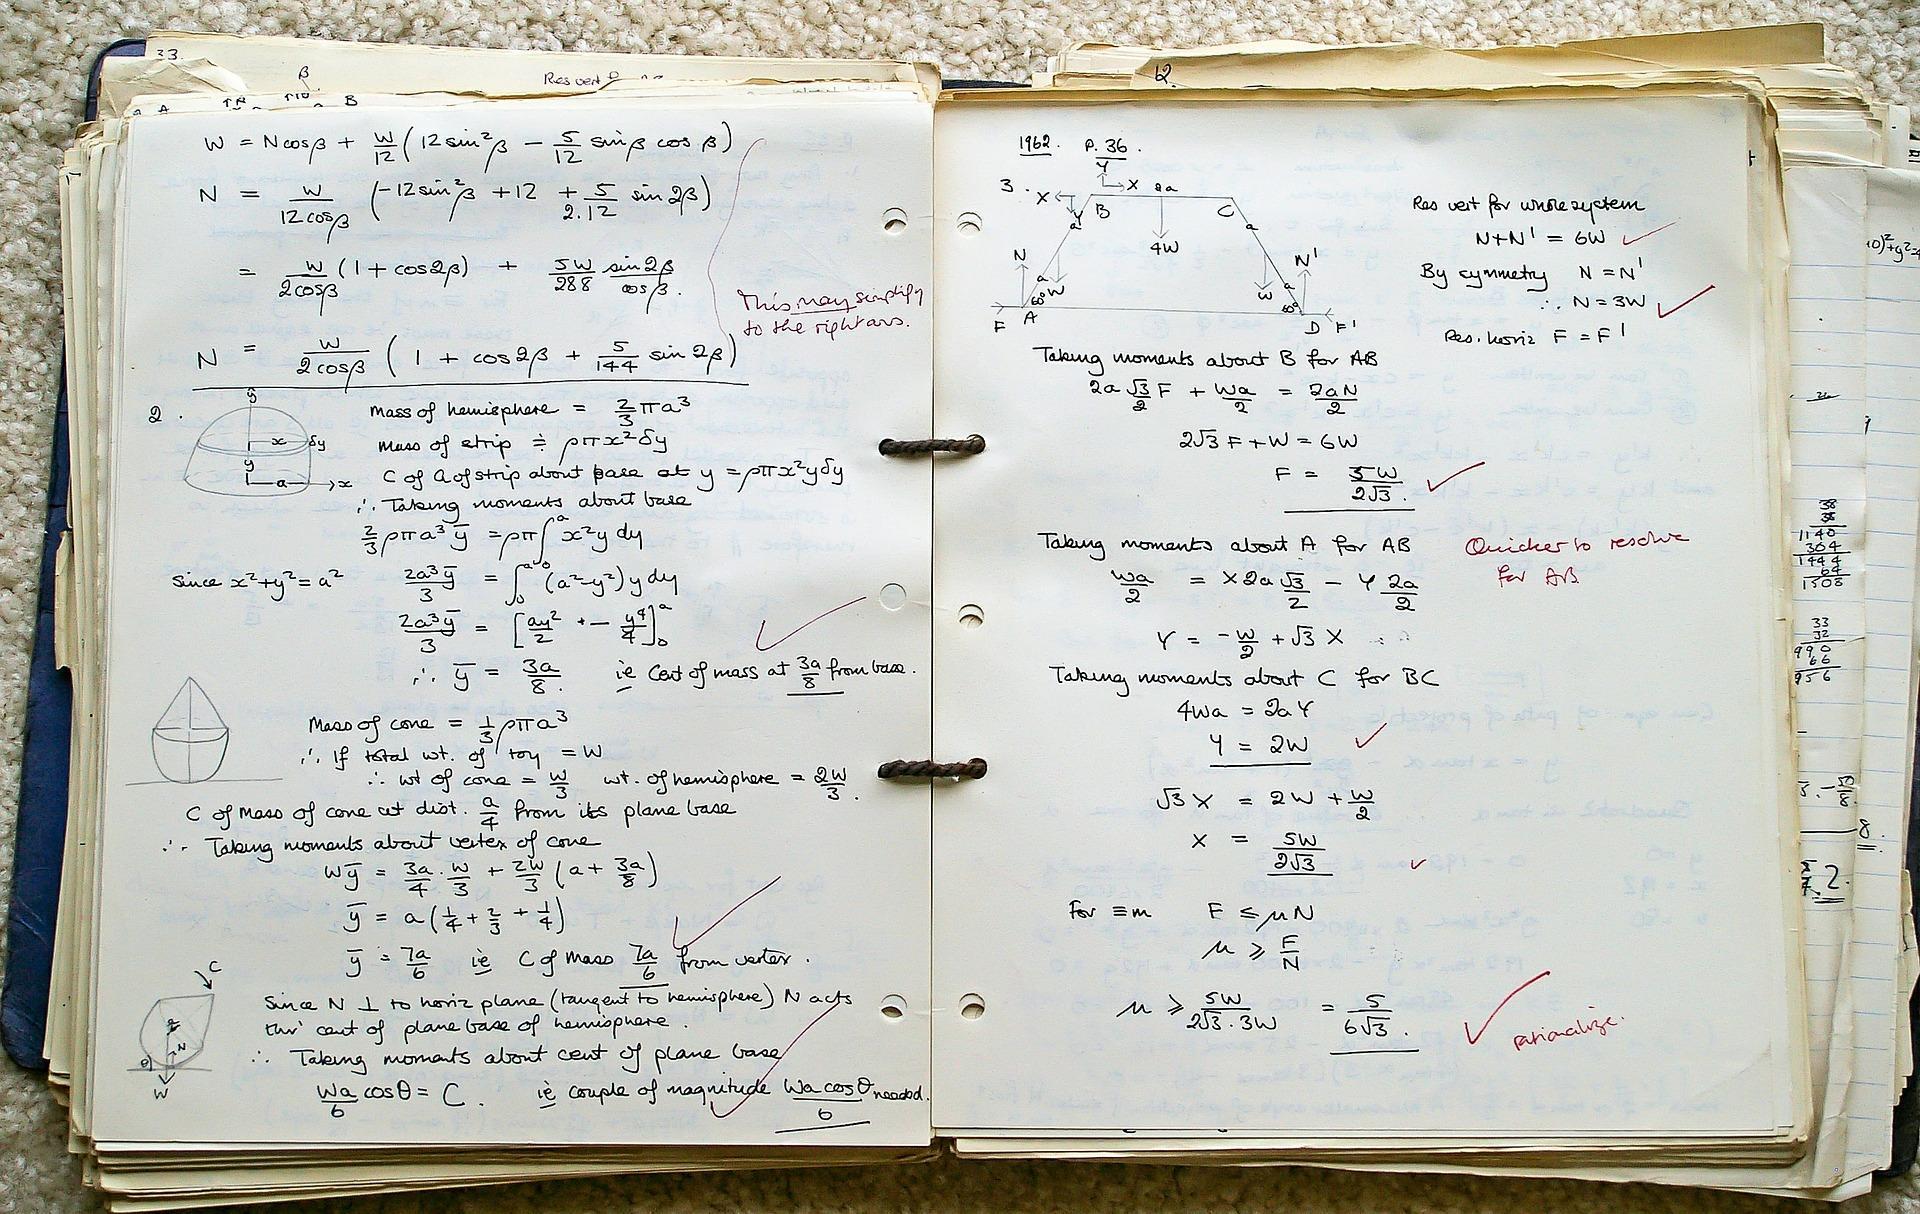 33.
β
Res vert
A
B
W = Ncosβ + W/12 (12sin²β − 5/12 sinβ cosβ)
N = W/12cosβ (−12sin²β + 12 + 5/2.12 sin2β)
= W/2cosβ (1 + cos2β) + 5W/288 sin2β/cosβ.
This may simplify
to the right ans.
N = W/2cosβ (1 + cos2β + 5/144 sin2β)
2.
y
x
δy
y
a
x
Mass of hemisphere = 2/3 πa³
Mass of strip ≑ ρπx²δy
C of G of strip about base at y = ρπx²yδy
∴ Taking moments about base
2/3 ρπa³ȳ = ρπ∫ᵃ₀ x²y dy
Since x²+y²=a² 2a³ȳ/3 = ∫ᵃ₀ (a²−y²) y dy
2a³ȳ/3 = [ay²/2 − y⁴/4]ᵃ₀
∴ ȳ = 3a/8. ie Cent of mass at 3a/8 from base.
Mass of cone = 1/3 ρπa³
∴ If total wt. of toy = W
∴ wt of cone = W/3 wt. of hemisphere = 2W/3.
C of Mass of cone at dist. a/4 from its plane base
∴ Taking moments about vertex of cone
Wȳ = 3a/4 . W/3 + 2W/3 (a + 3a/8)
ȳ = a(1/4 + 2/3 + 1/4)
ȳ = 7a/6 ie C of Mass 7a/6 from vertex.
C
N
θ
W
Since N ⊥ to horiz plane (tangent to hemisphere) N acts
thr' cent of plane base of hemisphere.
∴ Taking moments about cent of plane base
Wa/6 cosθ = C. ie couple of magnitude Wa cosθ/6 needed.
12
1962. P. 36.
3.
Y
X
X
2a
B
C
Y
a
a
4W
N
N'
a
W
W
a
60°
60°
F
A
D
F'
Res vert for whole system
N+N' = 6W
By symmetry N = N'
∴ N = 3W
Res. horiz F = F'
Taking moments about B for AB
2a √3/2 F + Wa/2 = 2aN/2
2√3 F + W = 6W
F = 5W/2√3.
Taking moments about A for AB
Quicker to resolve
for AB
Wa/2 = X2a √3/2 − Y 2a/2
Y = −W/2 + √3 X
Taking moments about C for BC
4Wa = 2aY
Y = 2W
√3 X = 2W + W/2
X = 5W/2√3
For ≡m F ≤ μN
μ ≥ F/N
μ ≥ 5W/2√3 . 3W = 5/6√3.
rationalize.
38
38
1140
304
1444
64
1508
33
32
990
66
956
8.
2.